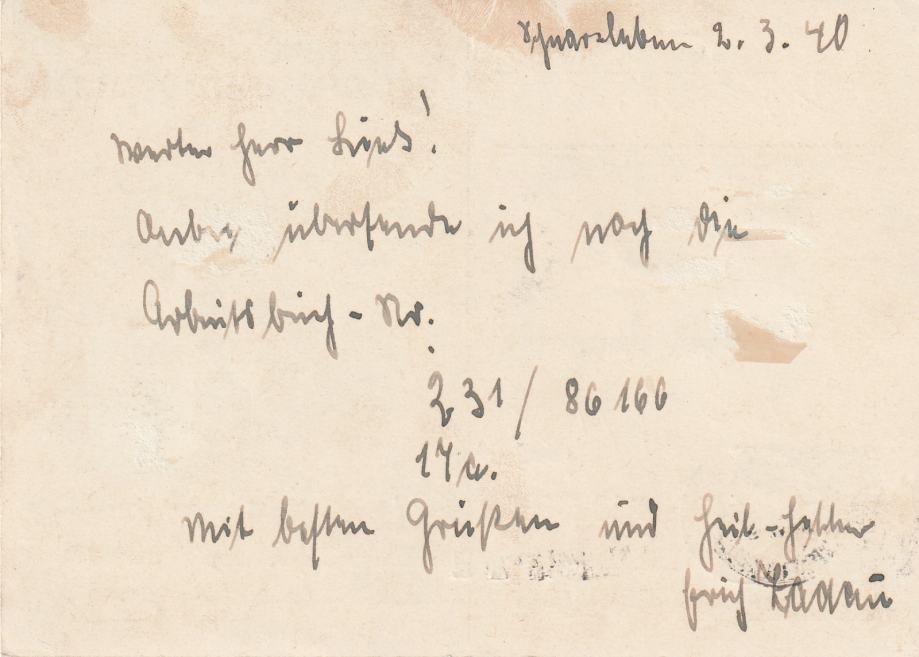 Schnarsleben 2. 3. 40
Werter Herr
Anbei übersende ich noch die
Arbeitsbuch-Nr.
231 / 86166
17a.
Mit besten Grüßen und Heil-Hitler
Erich